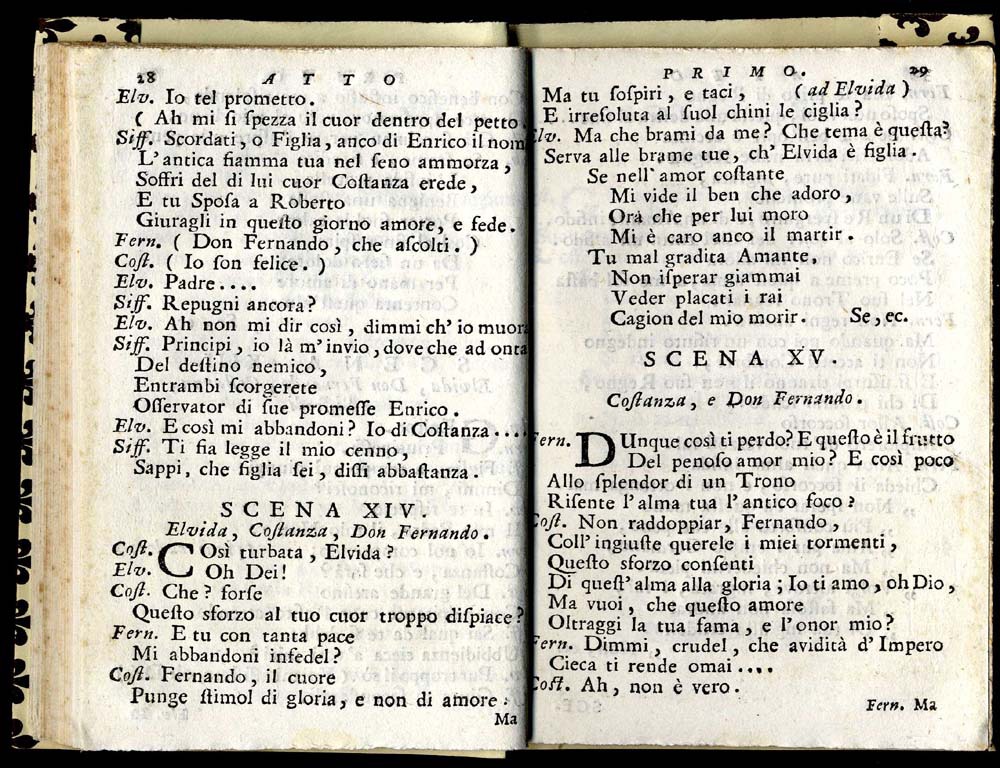 28
A T T O
Elv. Io tel prometto.
( Ah mi si ſpezza il cuor dentro del petto
Siff. Scordati, o Figlia, anco di Enrico il nom
L'antica fiamma tua nel ſeno ammorza,
Soffri del di lui cuor Coſtanza erede,
E tu Spoſa a Roberto
Giuragli in queſto giorno amore, e fede.
Fern. ( Don Fernando, che aſcolti. )
Coſt. ( Io ſon felice. )
Elv. Padre....
Siff. Repugni ancora?
Elv. Ah non mi dir così, dimmi ch' io muora
Siff. Principi, io là m'invio, dove che ad onta
Del deſtino nemico,
Entrambi ſcorgerete
Oſſervator di ſue promeſſe Enrico.
Elv. E così mi abbandoni? Io di Coſtanza....
Siff. Ti fia legge il mio cenno,
Sappi, che figlia ſei, diſſi abbaſtanza.
SCENA XIV.
Elvida, Coſtanza, Don Fernando.
Coſt. COsì turbata, Elvida?
Elv. Oh Dei!
Coſt. Che? forſe
Queſto sforzo al tuo cuor troppo diſpiace?
Fern. E tu con tanta pace
Mi abbandoni infedel?
Coſt. Fernando, il cuore
Punge ſtimol di gloria, e non di amore.
Ma
P R I M O.
29
Ma tu ſoſpiri, e taci, ( ad Elvida )
E irreſoluta al ſuol chini le ciglia?
Elv. Ma che brami da me? Che tema è queſta?
Serva alle brame tue, ch' Elvida è figlia.
Se nell' amor coſtante
Mi vide il ben che adoro,
Ora che per lui moro
Mi è caro anco il martir.
Tu mal gradita Amante,
Non iſperar giammai
Veder placati i rai
Cagion del mio morir. Se, ec.
SCENA XV.
Coſtanza, e Don Fernando.
Fern. DUnque così ti perdo? E queſto è il frutto
Del penoſo amor mio? E così poco
Allo ſplendor di un Trono
Riſente l'alma tua l'antico foco?
Coſt. Non raddoppiar, Fernando,
Coll' ingiuſte querele i miei tormenti,
Queſto sforzo conſenti
Di queſt' alma alla gloria; Io ti amo, oh Dio,
Ma vuoi, che queſto amore
Oltraggi la tua fama, e l'onor mio?
Fern. Dimmi, crudel, che avidità d' Impero
Cieca ti rende omai....
Coſt. Ah, non è vero.
Fern. Ma